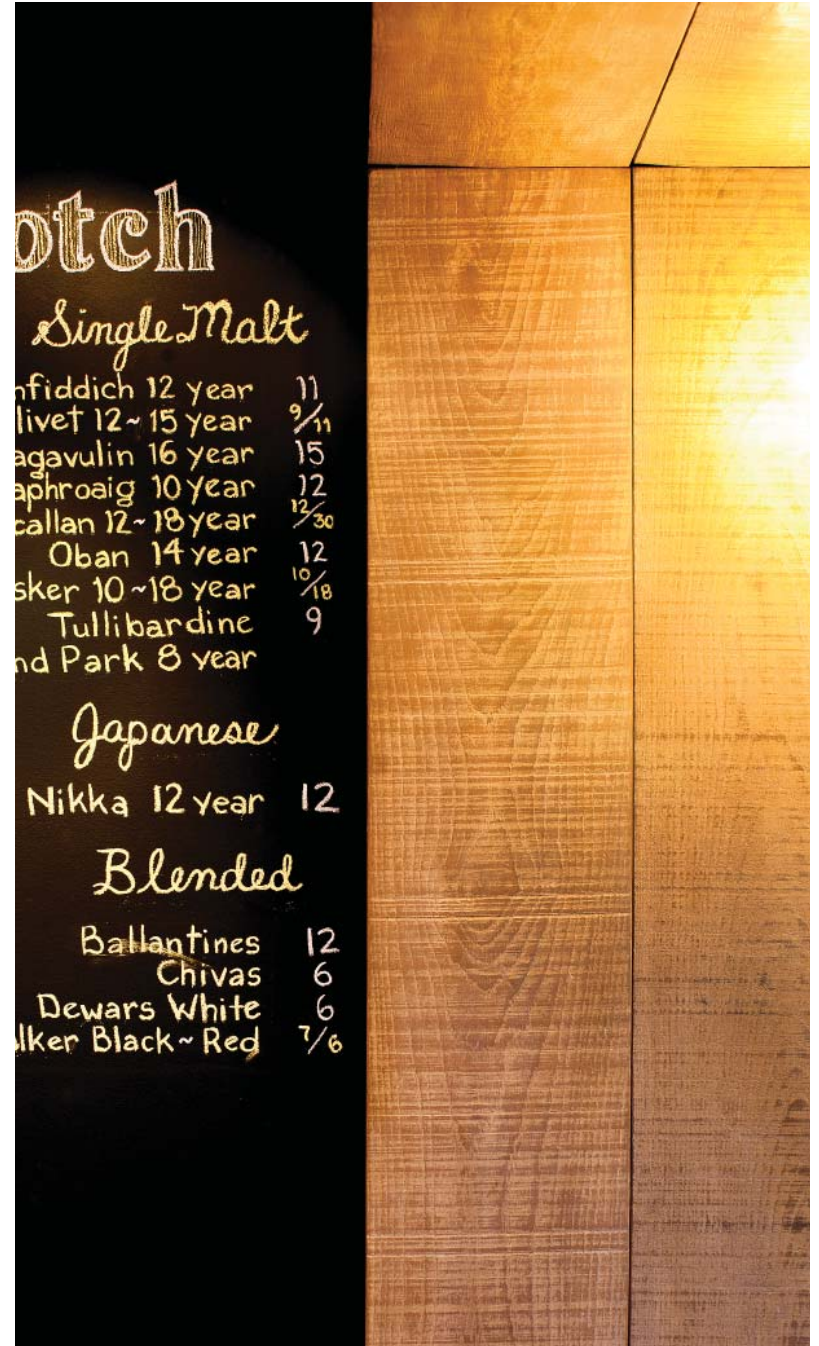 otch
Single Malt
nfiddich 12 year 11
livet 12~15 year 9/11
agavulin 16 year 15
aphroaig 10 year 12
callan 12~18 year 12/30
Oban 14 year 12
sker 10~18 year 10/18
Tullibardine 9
nd Park 8 year
Japanese
Nikka 12 year 12
Blended
Ballantines 12
Chivas 6
Dewars White 6
lker Black~Red 7/6